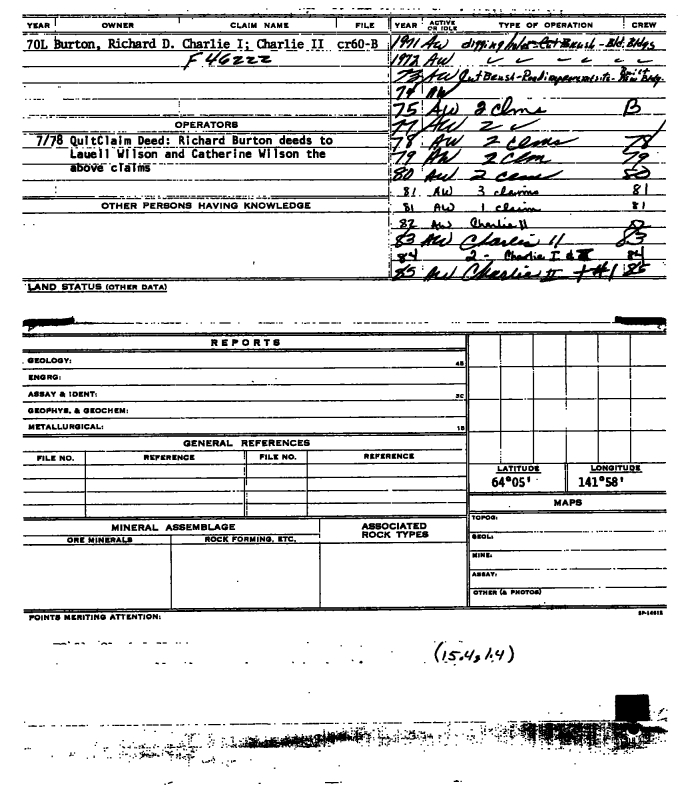 YEAR OWNER CLAIM NAME FILE YEAR ACTIVE OR IDLE TYPE OF OPERATION CREW
70L Burton, Richard D. Charlie I; Charlie II cr60-B 1971 AW digging Bld. Bldgs
F 46222 1972 AW ✓ ✓ ✓ ✓ ✓
73 AW Cut Brush-Road New Bldg.
74 AW
75 AW 2 clms B
OPERATORS 77 AW 2 ✓
7/78 QuitClaim Deed: Richard Burton deeds to 78 AW 2 clms 78
Lauell Wilson and Catherine Wilson the 79 AW 2 clm 79
above claims 80 AW 2 80
81 AW 3 claims 81
OTHER PERSONS HAVING KNOWLEDGE 81 AW 1 claim 81
82 AW Charlie II 82
83 AW Charlie II 83
84 2 - Charlie I & II 84
85 AW Charlie II + #1 85
LAND STATUS (OTHER DATA)
REPORTS
GEOLOGY:
ENGRG:
ASSAY & IDENT:
GEOPHYS. & GEOCHEM:
METALLURGICAL:
GENERAL REFERENCES
FILE NO. REFERENCE FILE NO. REFERENCE
LATITUDE LONGITUDE
64°05' 141°58'
MAPS
MINERAL ASSEMBLAGE ASSOCIATED ROCK TYPES TOPOG:
ORE MINERALS ROCK FORMING, ETC. GEOL:
MINE:
ASSAY:
OTHER (& PHOTOS)
POINTS MERITING ATTENTION:
(15.4, 1.4)